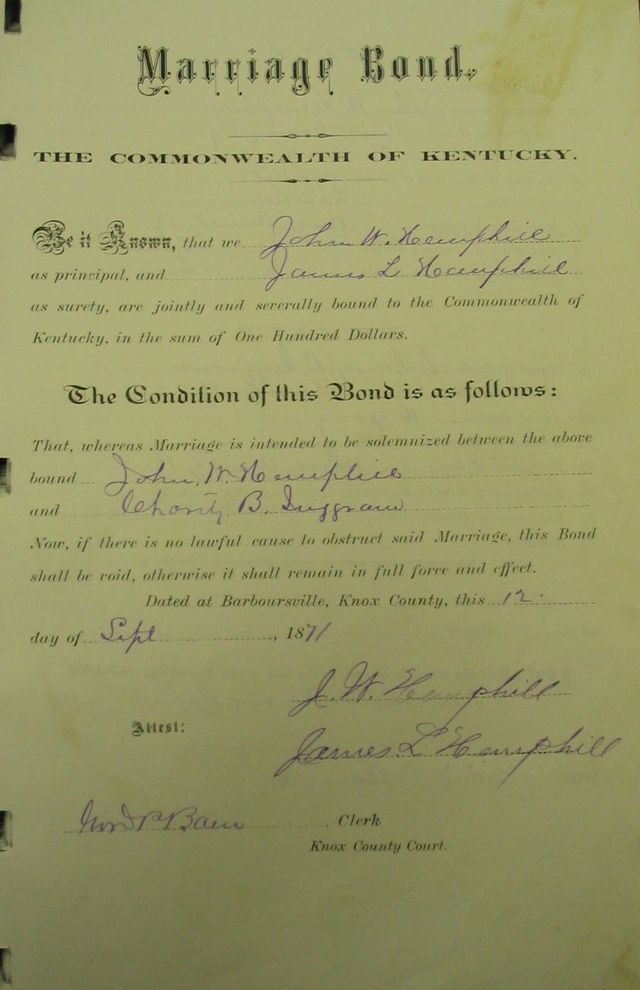 Marriage Bond.
THE COMMONWEALTH OF KENTUCKY.
Be it Known, that we John W. Hemphill
as principal, and James L Hemphill
as surety, are jointly and severally bound to the Commonwealth of
Kentucky, in the sum of One Hundred Dollars.
The Condition of this Bond is as follows:
That, whereas Marriage is intended to be solemnized between the above
bound John W. Hemphill
and Charity B. Inggram
Now, if there is no lawful cause to obstruct said Marriage, this Bond
shall be void, otherwise it shall remain in full force and effect.
Dated at Barboursville, Knox County, this 12
day of Sept, 1871
J. W. Hemphill
Attest:
James L Hemphill
Bain Clerk
Knox County Court.